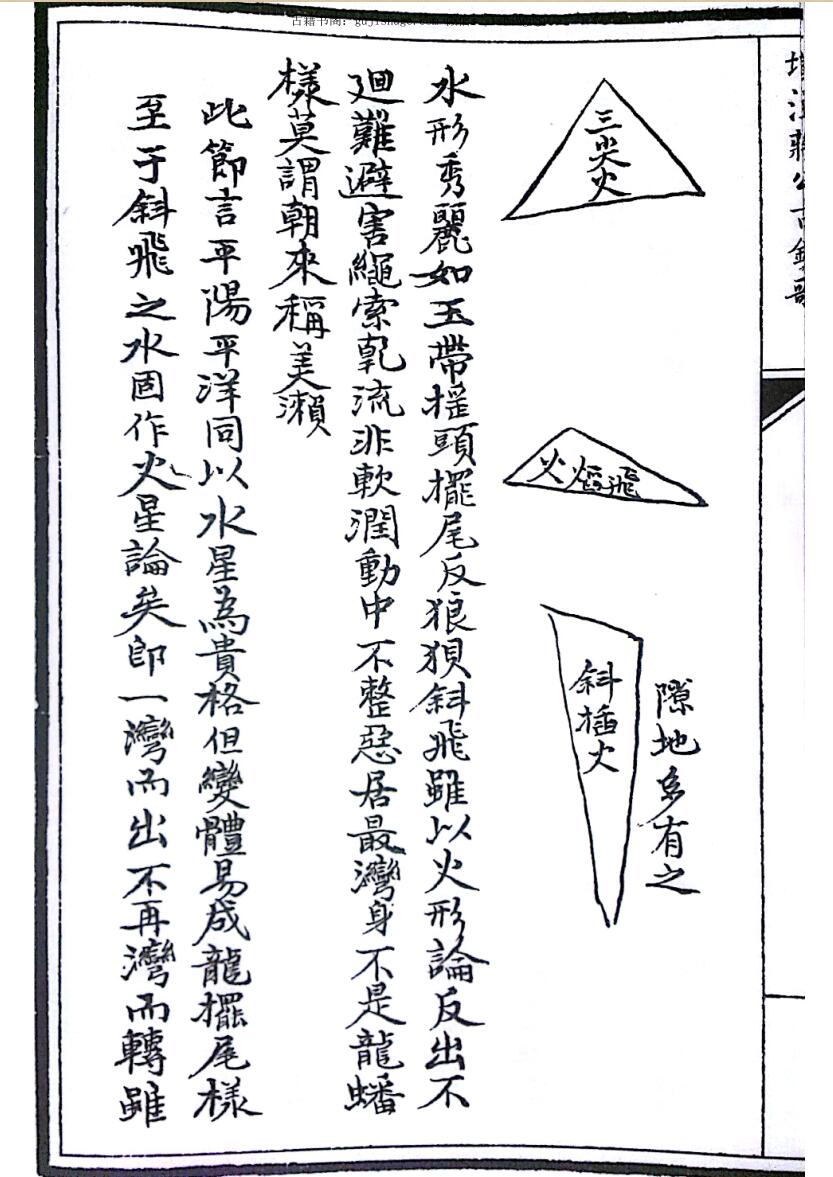 三尖火
火焰飛
斜插火
隙地多有之
水形秀麗如玉帶摇頭擺尾反狼狽斜飛雖以火形論反出不
廻難避害繩索乾流非軟潤動中不整惡居最灣身不是龍蟠
樣莫謂朝來稱美瀨
此節言平陽平洋同以水星為貴格但變體易成龍擺尾樣
至于斜飛之水固作火星論矣即一灣而出不再灣而轉雖